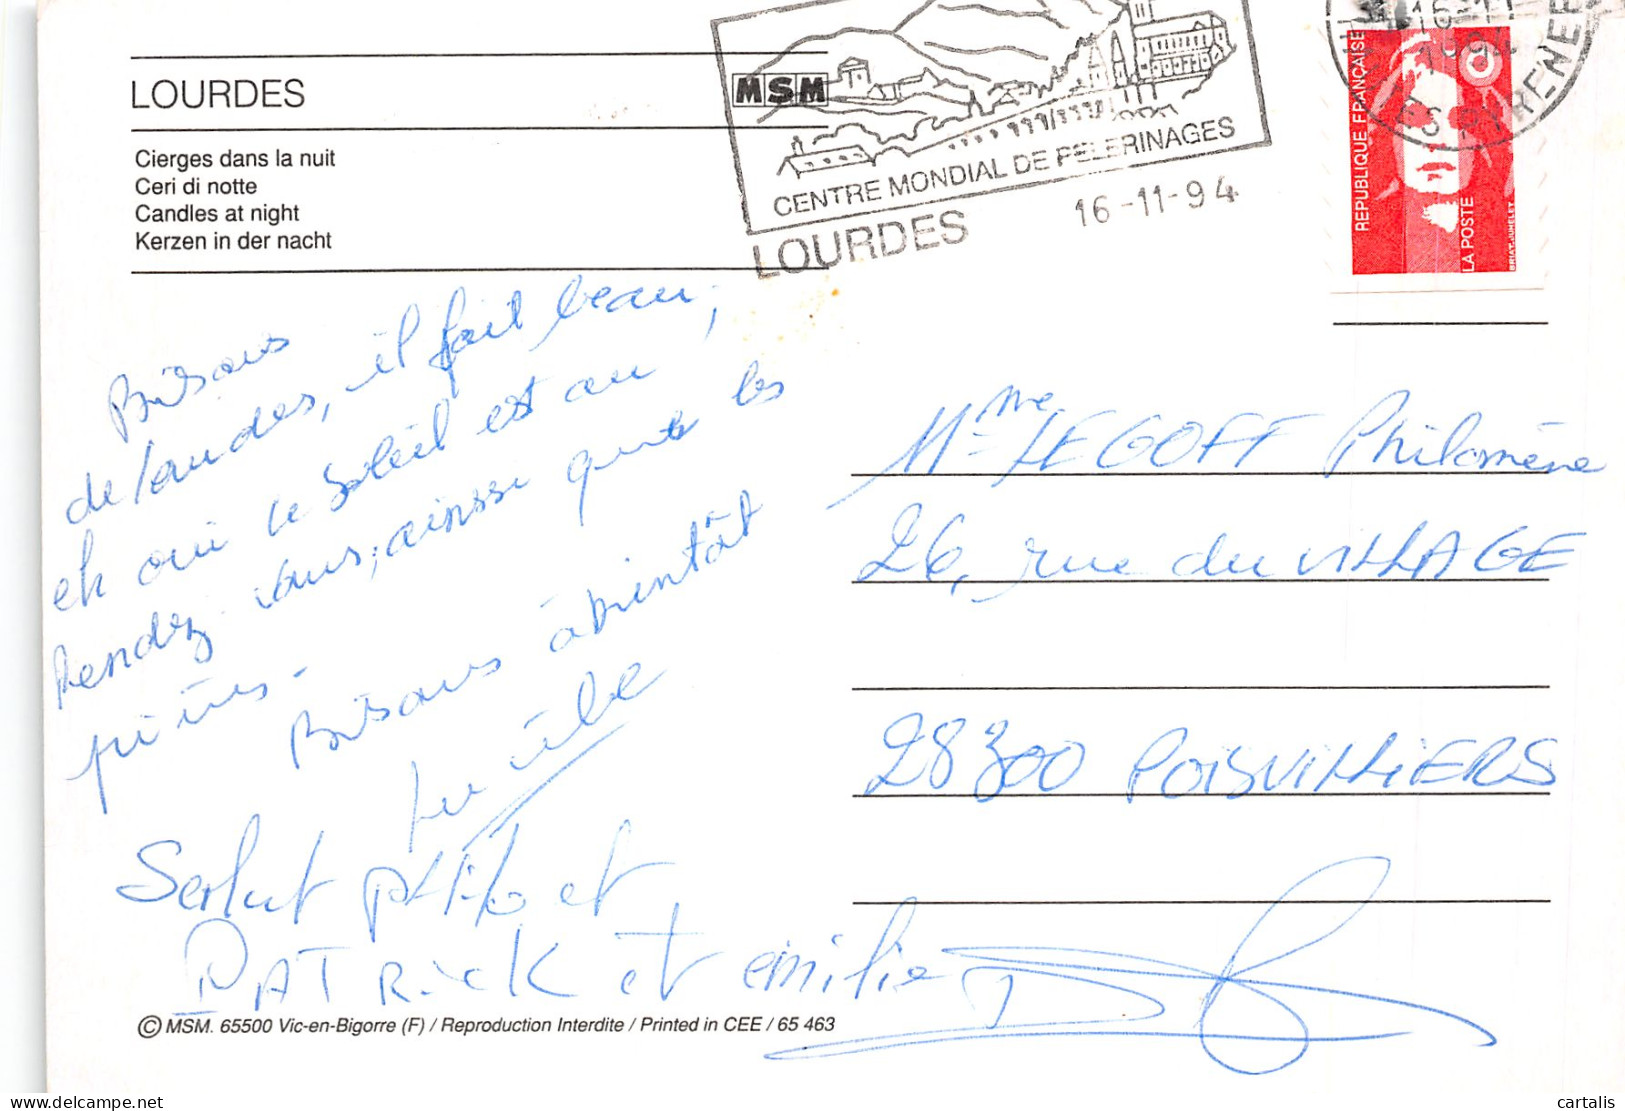 LOURDES
Cierges dans la nuit
Ceri di notte
Candles at night
Kerzen in der nacht
MSM
CENTRE MONDIAL DE PELERINAGES
LOURDES
16-11-94
16-11
1994
PYRENEES
REPUBLIQUE FRANÇAISE
LA POSTE
BRIAT-JUMELET
Bisous
de lourdes, il fait beau,
eh oui le soleil est au
rendez-vous, ainssi que les
prières.
Bisous à bientôt
Salut et
PATRICK et emilie
Mme LEGOFF Philomène
26, rue du VILLAGE
28300 POISVILLIERS
© MSM. 65500 Vic-en-Bigorre (F) / Reproduction Interdite / Printed in CEE / 65 463
www.delcampe.net
cartalis